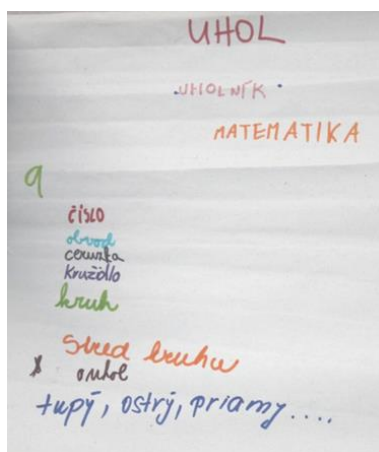 UHOL
UHOLNÍK
MATEMATIKA
9
ČÍSLO
obvod
ceruzka
Kružidlo
kruh
Stred kruhu
tupý, ostrý, priamy....